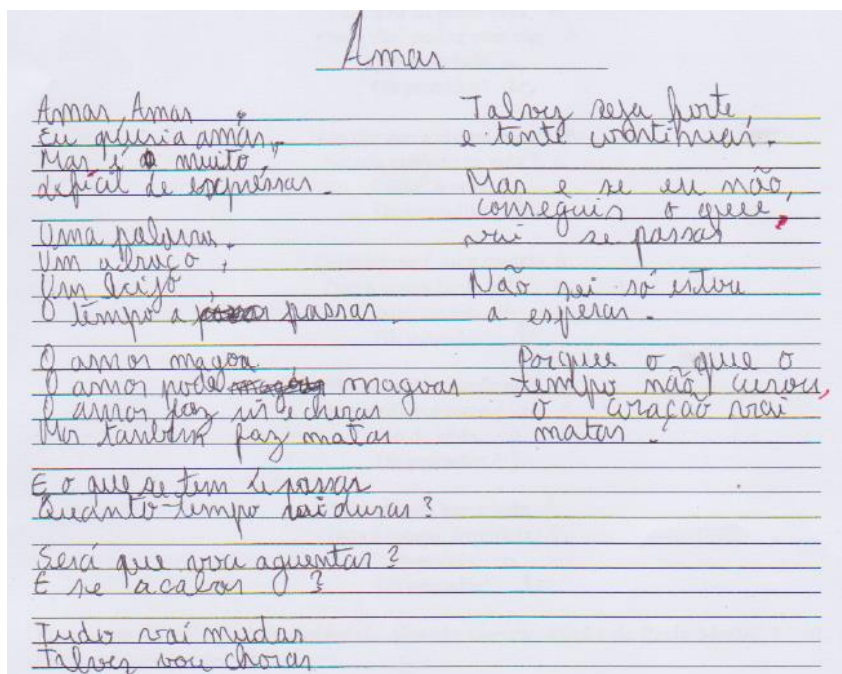 Amar
Amar, Amar,
Eu queria amar,
Mas é muito,
difícil de expressar.
Uma palavra,
Um abraço,
Um beijo,
O tempo a passar.
O amor magoa
O amor pode magoar
O amor faz rir e chorar
Mas também faz matar
E o que se tem de passar
Quanto tempo vai durar?
Será que vou aguentar?
E se acabar?
Tudo vai mudar
Talvez vou chorar
Talvez seja forte,
e tente continuar.
Mas e se eu não,
conseguir o que,
vai se passar
Não sei só estou
a esperar.
Porque o que o
tempo não curou,
o coração vai
matar.